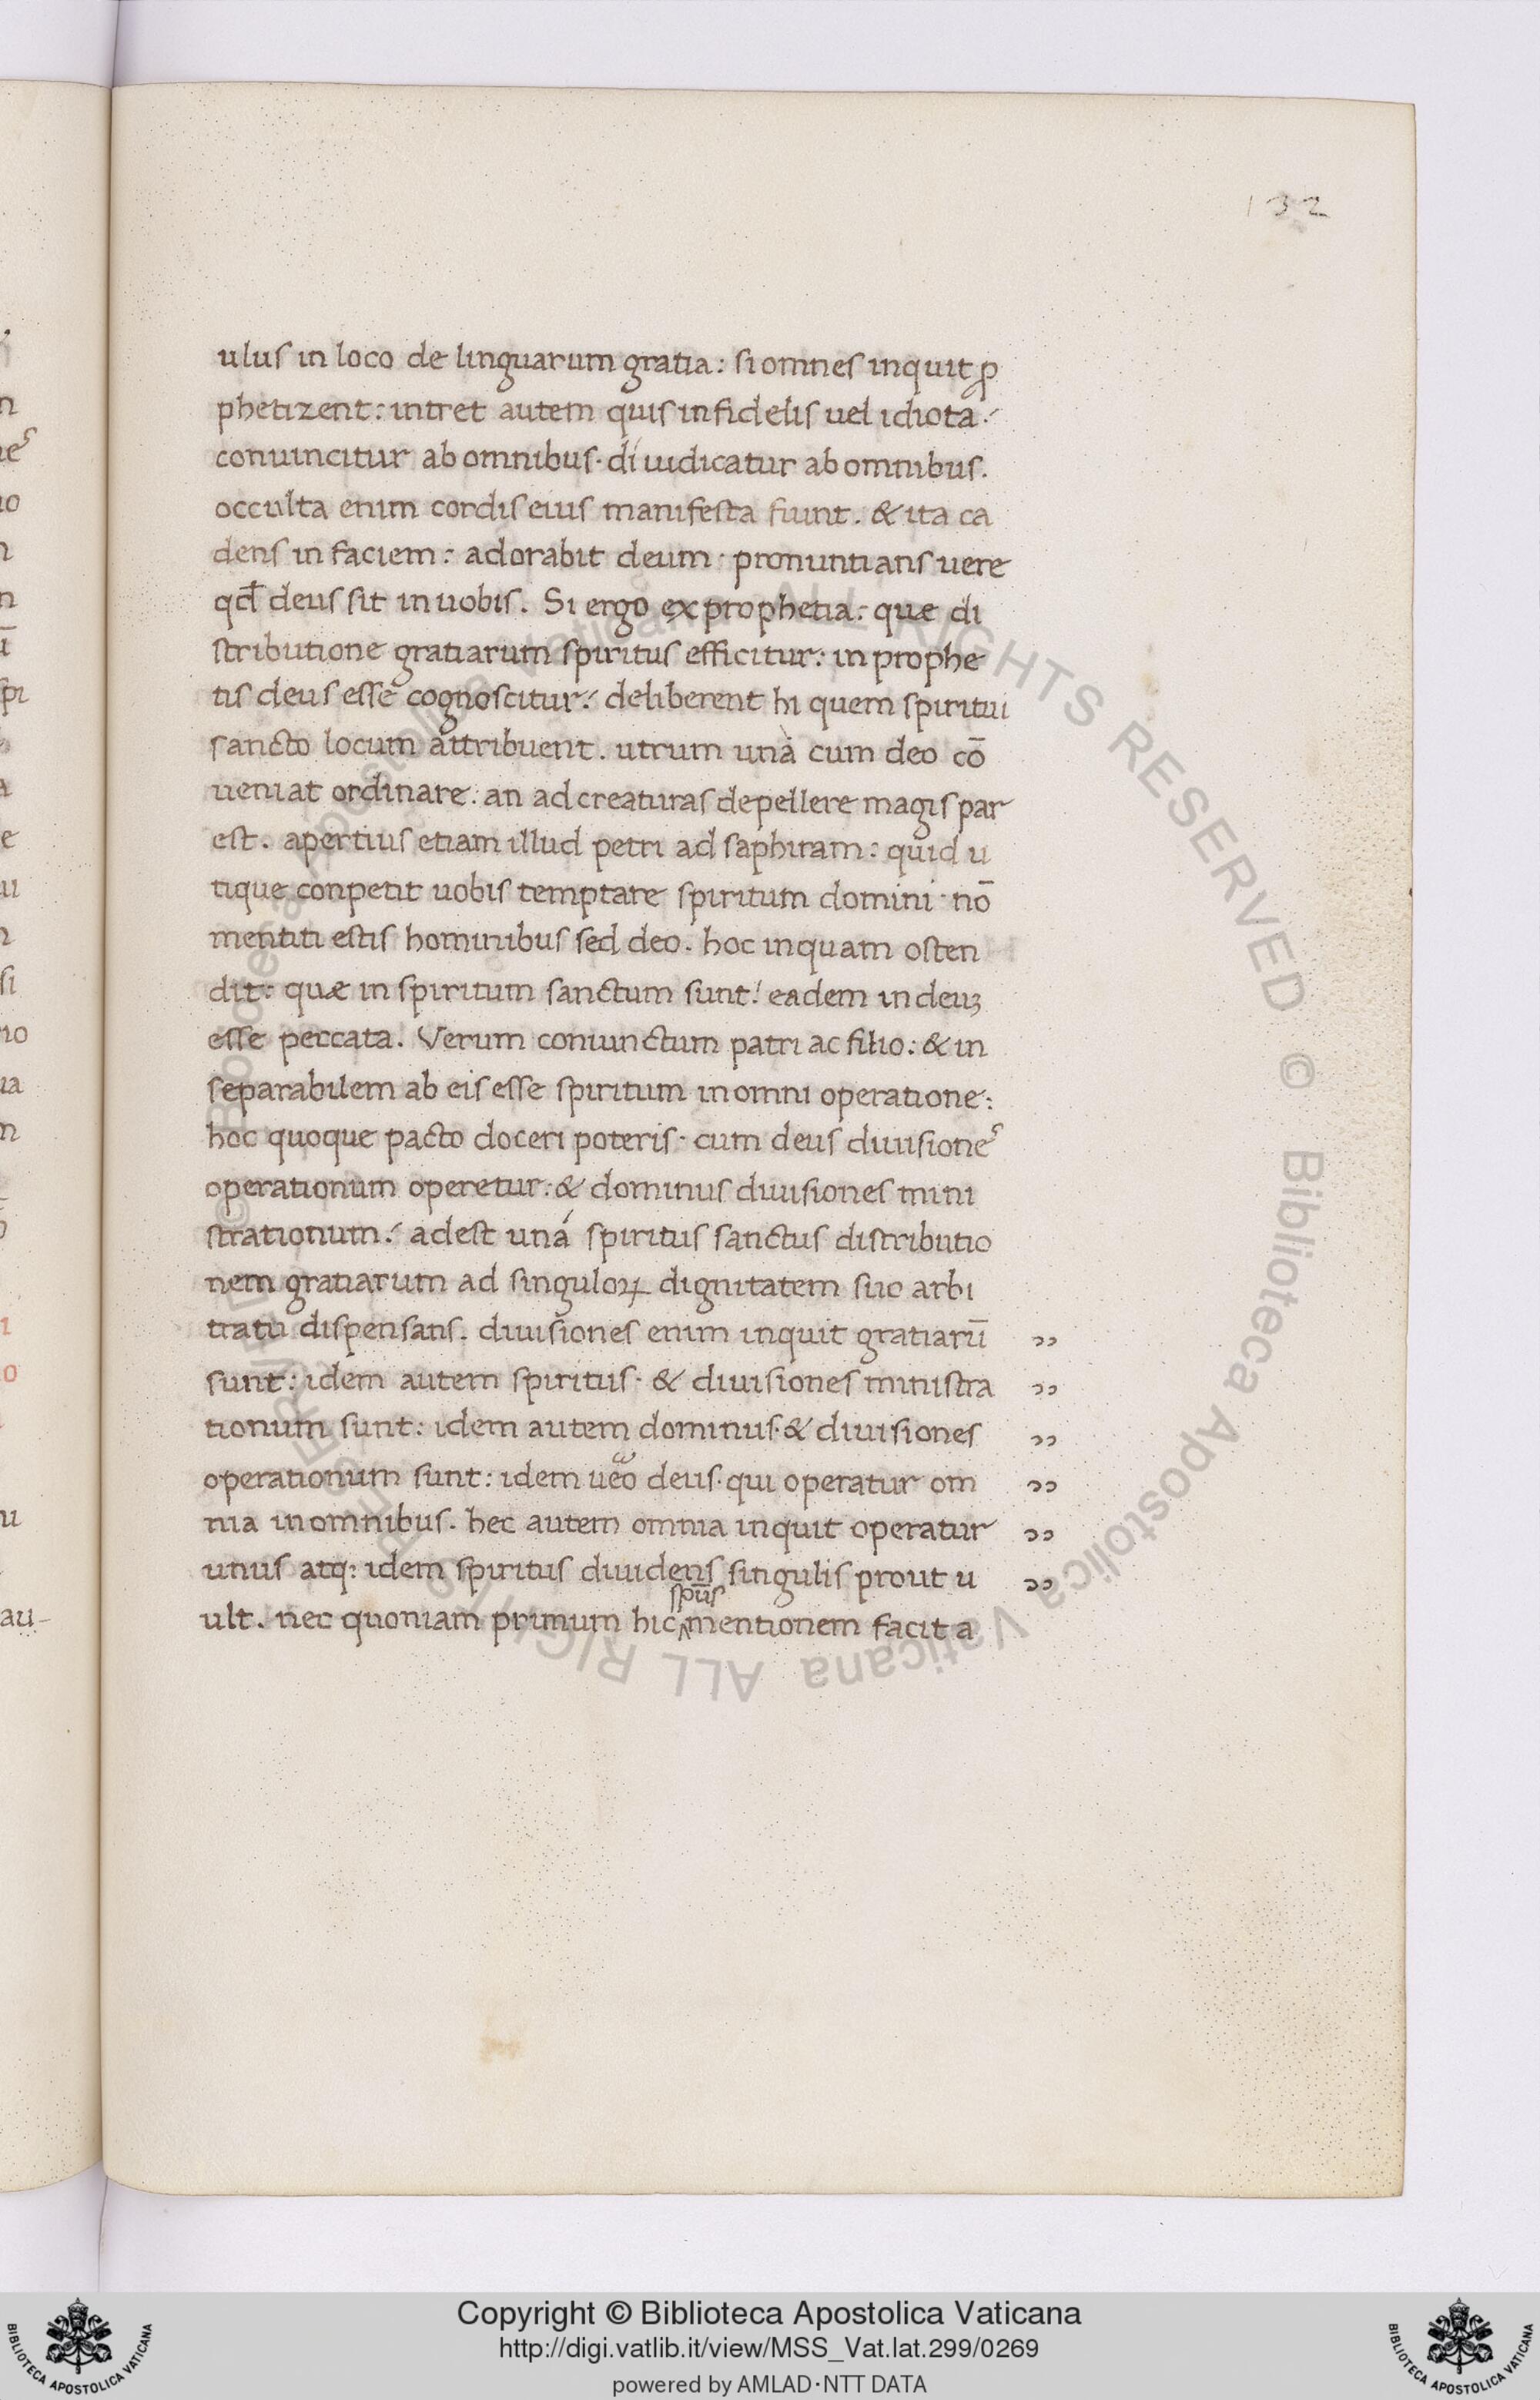 132
ulus in loco de linguarum gratia: si omnes inquit ꝓ
phetizent: intret autem quis infidelis uel idiota:
conuincitur ab omnibus· di iudicatur ab omnibus.
occulta enim cordis eius manifesta fiunt. & ita ca
dens in faciem: adorabit deum· pronuntians uere
qđ deus sit in uobis. Si ergo ex prophetia: quæ di
stributione gratiarum spiritus efficitur: in prophe
tis deus esse cognoscitur: deliberent hi quem spiritui
sancto locum attribuent. utrum unà cum deo cō
ueniat ordinare: an ad creaturas depellere magis par
est. apertius etiam illud petri ad saphiram: quid u
tique conpetit uobis temptare spiritum domini· nō
mentiti estis hominibus sed deo. hoc inquam osten
dit: quæ in spiritum sanctum sunt! eadem in deuꝫ
esse peccata. Verum coniunctum patri ac filio: & in
separabilem ab eis esse spiritum in omni operatione:
hoc quoque pacto doceri poteris· cum deus diuisiones
operationum operetur: & dominus diuisiones mini
strationum: adest uná spiritus sanctus distributio
nem gratiarum ad singuloꝝ dignitatem suo arbi
tratu dispensans. diuisiones enim inquit gratiarū ,,
sunt: idem autem spiritus· & diuisiones ministra ,,
tionum sunt: idem autem dominus· & diuisiones ,,
operationum sunt: idem ueo deus· qui operatur om ,,
nia in omnibus. hec autem omnia inquit operatur ,,
unus atq: idem spiritus diuidens singulis prout u ,,
sp̄us
ult. nec quoniam primum hic mentionem facit a
Copyright © Biblioteca Apostolica Vaticana
http://digi.vatlib.it/view/MSS_Vat.lat.299/0269
powered by AMLAD·NTT DATA
BIBLIOTECA APOSTOLICA VATICANA
BIBLIOTECA APOSTOLICA VATICANA